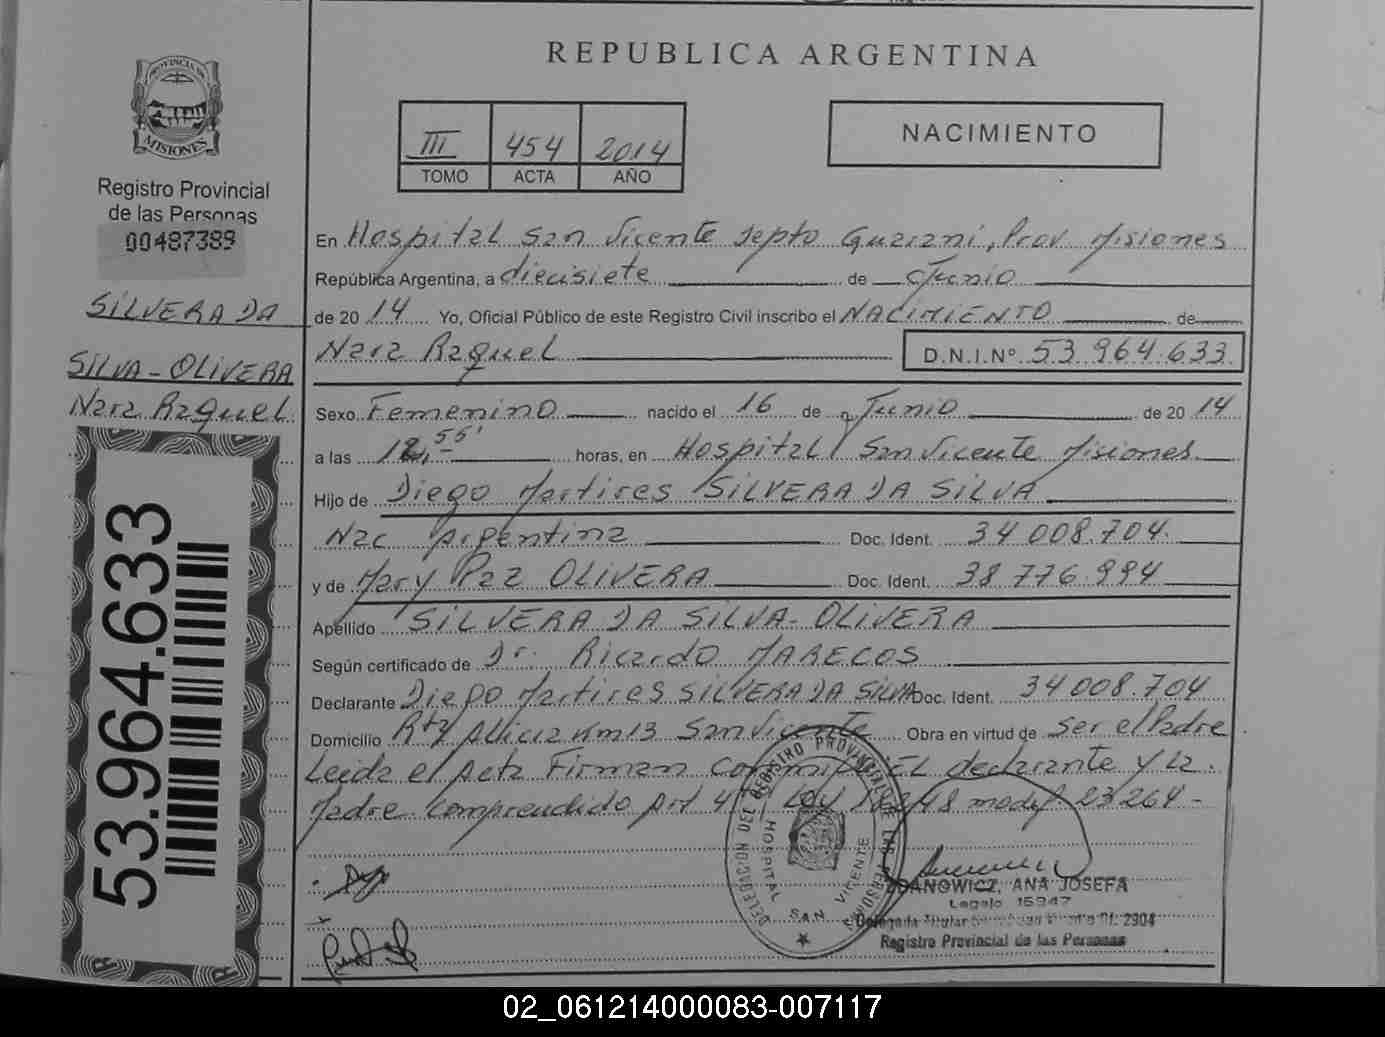 REPUBLICA ARGENTINA
PROVINCIA DE
MISIONES
Registro Provincial
de las Personas
00487389
SILVERA DA
SILVA - OLIVERA
Nara Raquel
53.964.633
III 454 2014
TOMO ACTA AÑO
NACIMIENTO
En Hospital San Vicente Depto Guarani, Prov Misiones
República Argentina, a diecisiete de Junio
de 2014 Yo, Oficial Público de este Registro Civil inscribo el NACIMIENTO de
Nara Raquel D.N.I.Nº 53 964.633
Sexo Femenino nacido el 16 de Junio de 2014
a las 55' horas, en Hospital San Vicente Misiones
Hijo de Diego Martires SILVERA DA SILVA
Nac Argentina Doc. Ident. 34 008.704.
y de Mary Paz OLIVERA Doc. Ident. 38 776.994
Apellido SILVERA DA SILVA - OLIVERA
Según certificado de Dr. Ricardo MARECOS
Declarante Diego Martires SILVERA DA SILVA Doc. Ident. 34 008.704
Domicilio Alicia Km 13 San Vicente Obra en virtud de ser el Padre
Leida el Acta Firman conmigo EL declarante y La
Madre. Comprendido Art Ley modif. 23 264 -
DELEGACION DEL REGISTRO PROVINCIAL DE LAS PERSONAS
HOSPITAL SAN VICENTE
ZDANOWICZ, ANA JOSEFA
Legajo 15947
Delegada Titular 2904
Registro Provincial de las Personas
02_061214000083-007117